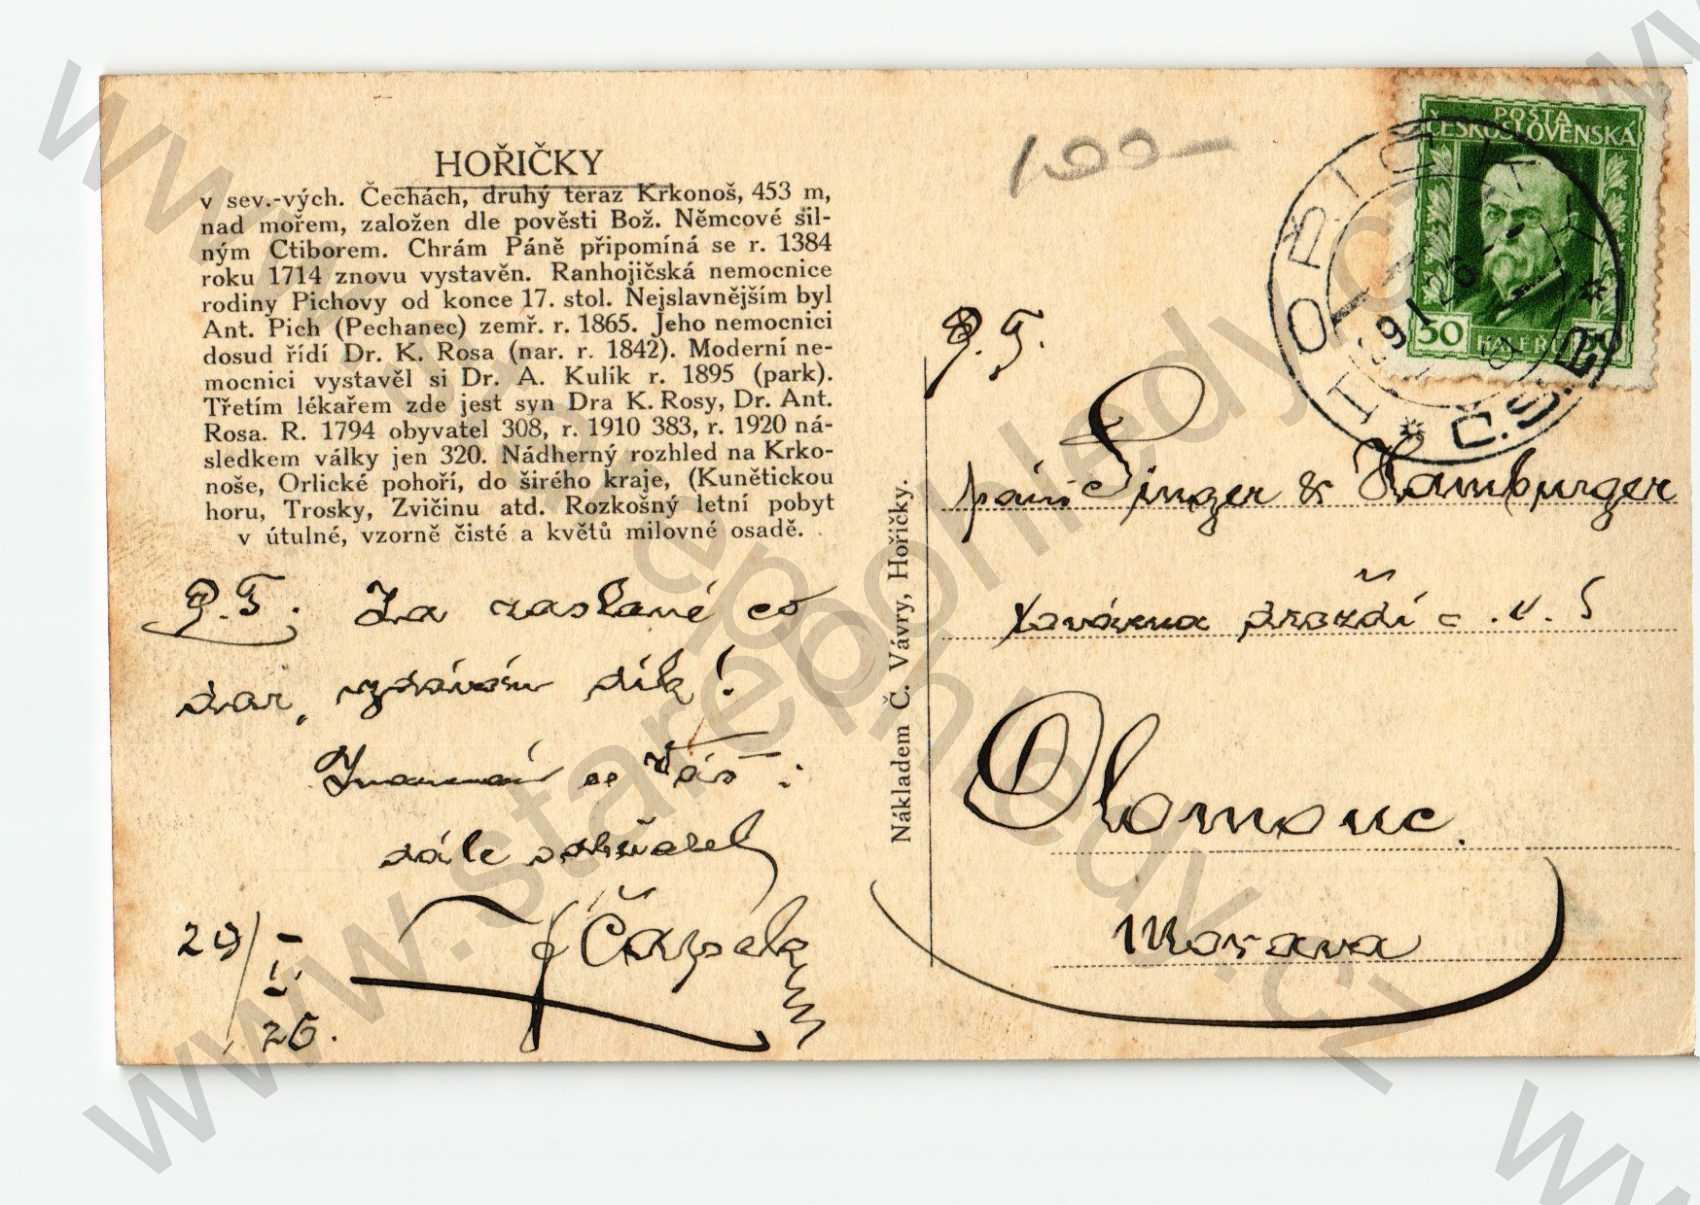 HOŘIČKY
v sev.-vých. Čechách, druhý teraz Krkonoš, 453 m,
nad mořem, založen dle pověsti Bož. Němcové sil-
ným Ctiborem. Chrám Páně připomíná se r. 1384
roku 1714 znovu vystavěn. Ranhojičská nemocnice
rodiny Pichovy od konce 17. stol. Nejslavnějším byl
Ant. Pich (Pechanec) zemř. r. 1865. Jeho nemocnici
dosud řídí Dr. K. Rosa (nar. r. 1842). Moderní ne-
mocnici vystavěl si Dr. A. Kulík r. 1895 (park).
Třetím lékařem zde jest syn Dra K. Rosy, Dr. Ant.
Rosa. R. 1794 obyvatel 308, r. 1910 383, r. 1920 ná-
sledkem války jen 320. Nádherný rozhled na Krko-
noše, Orlické pohoří, do širého kraje, (Kunětickou
horu, Trosky, Zvičinu atd. Rozkošný letní pobyt
v útulné, vzorně čisté a květů milovné osadě.
P.T. Za zaslané
dar, vzdávám dík!
se Váš
dále
Čapek
29/I 26.
Nákladem Č. Vávry, Hořičky.
100-
POŠTA
ČESKOSLOVENSKÁ
50 HALÉŘŮ 50
HOŘIČKY
Č.S.R.
P.T.
páni Singer & Hamburger
továrna droždí
Olomouc.
Morava
www.starepohledy.cz